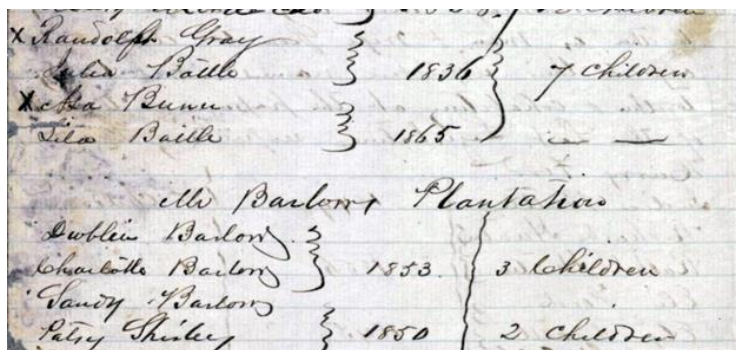 X Randolph Gray
Julia Battle } 1836 } 7 Children
X Asa Bunn
Lila Battle } 1865 — —
Mr Barlows Plantation
Dublin Barlow
Charlotte Barlow } 1853. 3 Children
Sandy Barlow
Patsy Shirley } 1850 2 Children